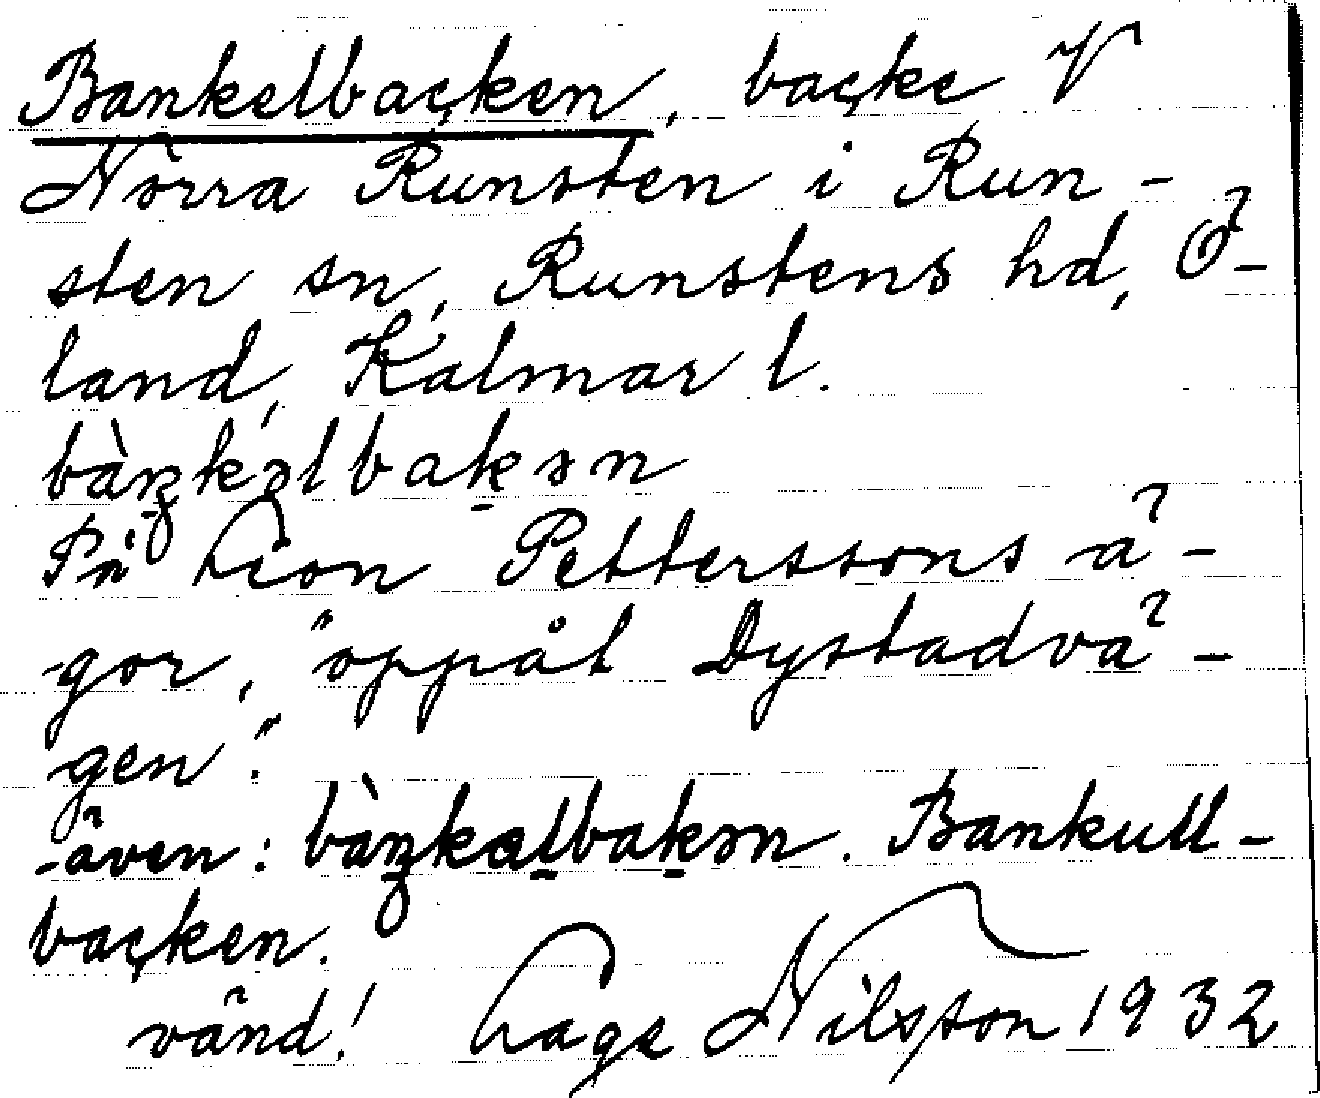 Bankelbacken, backe V
Norra Runsten i Run-
sten sn, Runstens hd, Ö-
land, Kalmar l.
bàŋkəlbakən
På Leon Petterssons ä-
gor, "oppåt Dystadvä-
gen".
även: bàŋkəlbakən. Bankull-
backen.
vänd! Lage Nilsson 1932